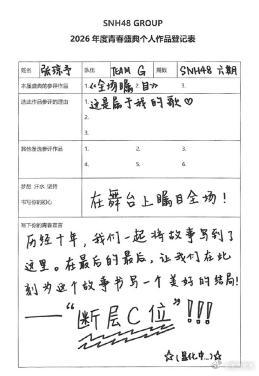 SNH48 GROUP
2026 年度青春盛典个人作品登记表
姓名 张琼予 队伍 TEAM G 期数 SNH48 六期
本届盛典的参评作品 1.《全场瞩目》 2. 3.
选此作品参评的理由 1. 这是属于我的歌♡
2.
3.
其他发选参评作品 1. 2. 3.
4. 5. 6.
梦想 汗水 坚持
书写你的初心
在舞台上瞩目全场!
写下你的青春宣言
历经十年,我们一起将故事写到了
这里。在最后的最后,让我们在此
刻为这个故事书写一个美好的结局!
——“断层C位”!!!
☆(显化中...)☆